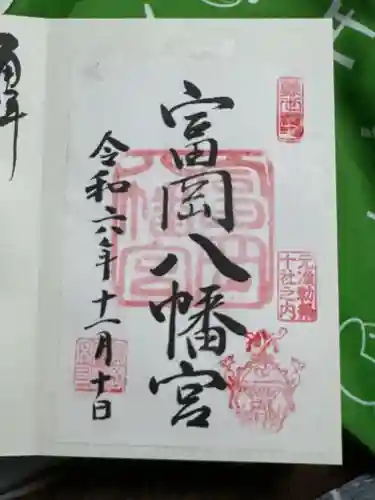 富岡八幡宮
令和六年十一月十日
元准勅祭
十社之内
富岡八幡宮